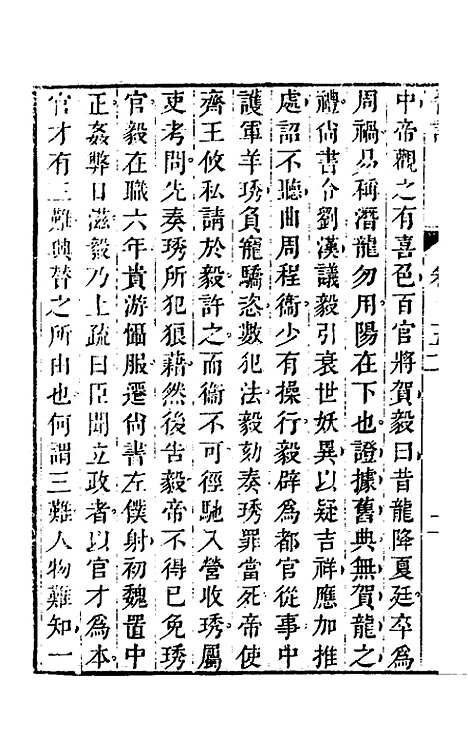 中帝觀之有喜色百官將賀毅曰昔龍降夏廷卒爲
周禍易稱潛龍勿用陽在下也證據舊典無賀龍之
禮尙書令劉漢議毅引衰世妖異以疑吉祥應加推
處詔不聽曲周程衞少有操行毅辟爲都官從事中
護軍羊琇負寵驕恣數犯法毅劾奏琇罪當死帝使
齊王攸私請於毅許之而衞不可徑馳入營收琇屬
吏考問先奏琇所犯狼藉然後告毅帝不得已免琇
官毅在職六年貴游懾服遷尙書左僕射初魏置中
正姦弊日滋毅乃上疏曰臣聞立政者以官才爲本
官才有三難興替之所由也何謂三難人物難知一